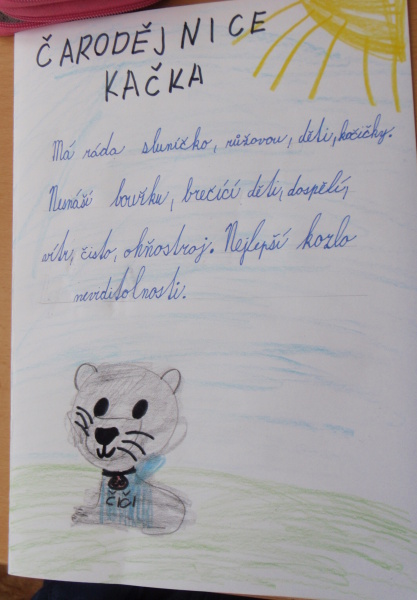 ČARODĚJNICE
KAČKA
Má ráda sluníčko, růžovou, děti, kočičky.
Nesnáší bouřku, brečící děti, dospělí,
vítr, čisto, ohňostroj. Nejlepší kozlo
nevditolnosti.
ČIČI